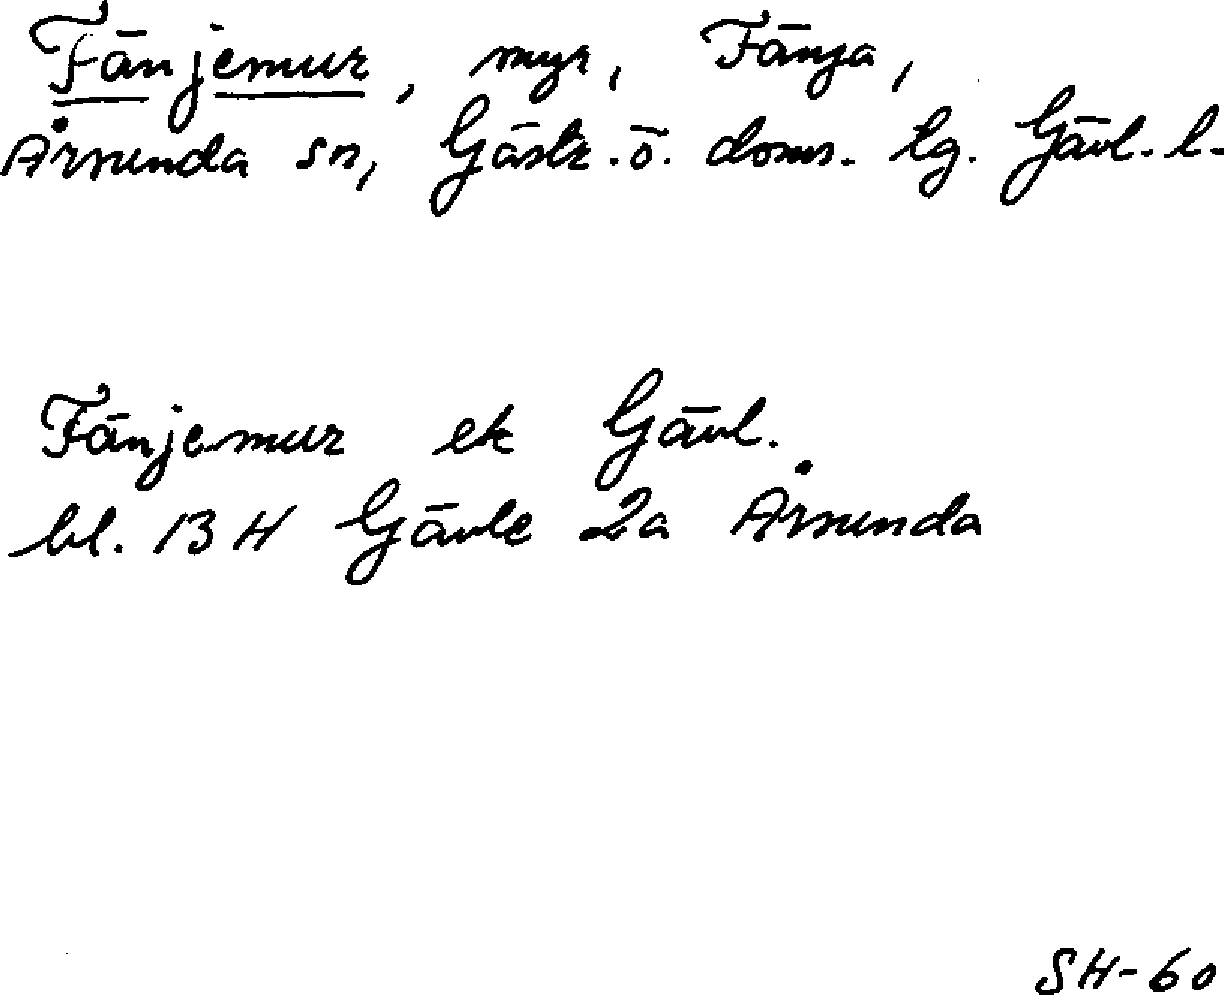 Fänjemur, myr, Fänja,
Årsunda sn, Gästr. ö. doms. lg. Gävl. l.
Fänjemur ek Gävl.
bl. 13 H Gävle 2a Årsunda
SH-60